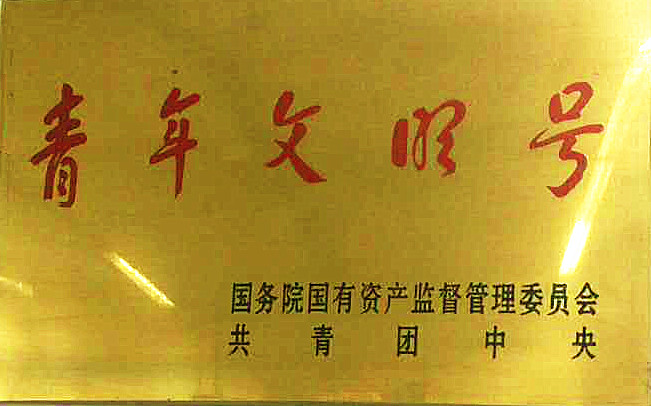 青年文明号
国务院国有资产监督管理委员会
共青团中央